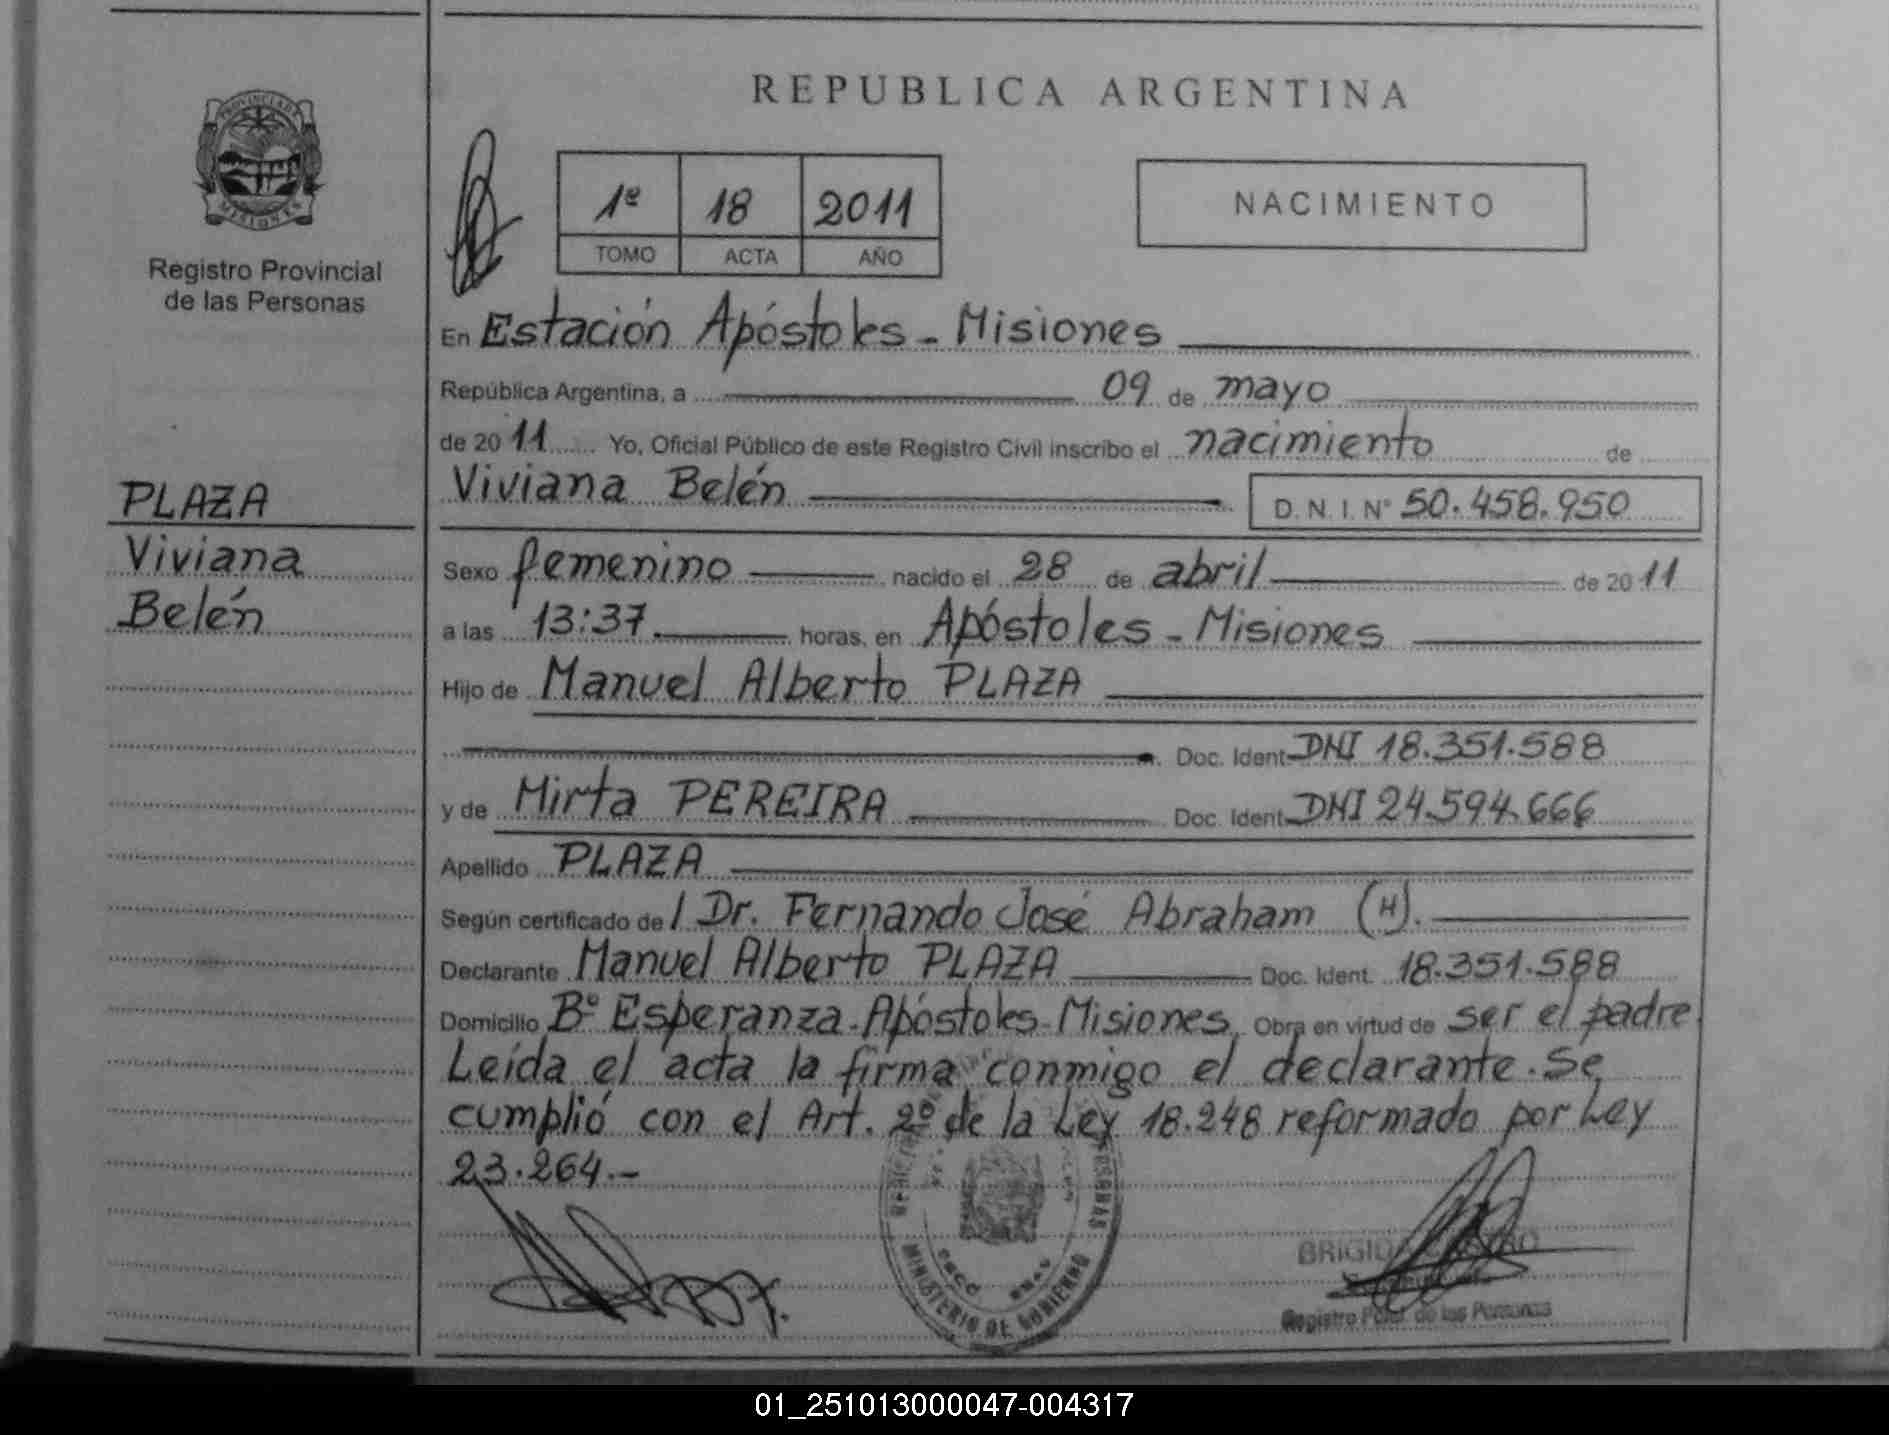 REPUBLICA ARGENTINA
PROVINCIA DE
MISIONES
Registro Provincial
de las Personas
1º 18 2011
TOMO ACTA AÑO
NACIMIENTO
En Estación Apóstoles - Misiones
República Argentina, a 09 de mayo
de 2011 Yo, Oficial Público de este Registro Civil inscribo el nacimiento de
Viviana Belén D. N. I. Nº 50.458.950
PLAZA
Viviana
Belén
Sexo femenino nacido el 28 de abril de 2011
a las 13:37 horas, en Apóstoles - Misiones
Hijo de Manuel Alberto PLAZA
Doc. Ident. DNI 18.351.588
y de Mirta PEREIRA Doc. Ident. DNI 24.594.666
Apellido PLAZA
Según certificado de / Dr. Fernando José Abraham (H).
Declarante Manuel Alberto PLAZA Doc. Ident. 18.351.588
Domicilio Bº Esperanza - Apóstoles - Misiones. Obra en virtud de ser el padre.
Leída el acta la firma conmigo el declarante. Se
cumplió con el Art. 2º de la Ley 18.248 reformado por Ley
23.264.-
MINISTERIO DE GOBIERNO
BRIGIDA CASTRO
Registro de las Personas
01_251013000047-004317